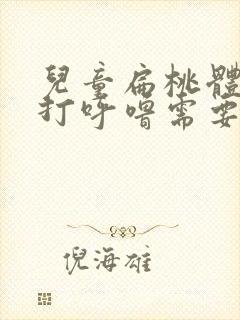 兒童扁桃體
打呼嚕需要
倪海雄